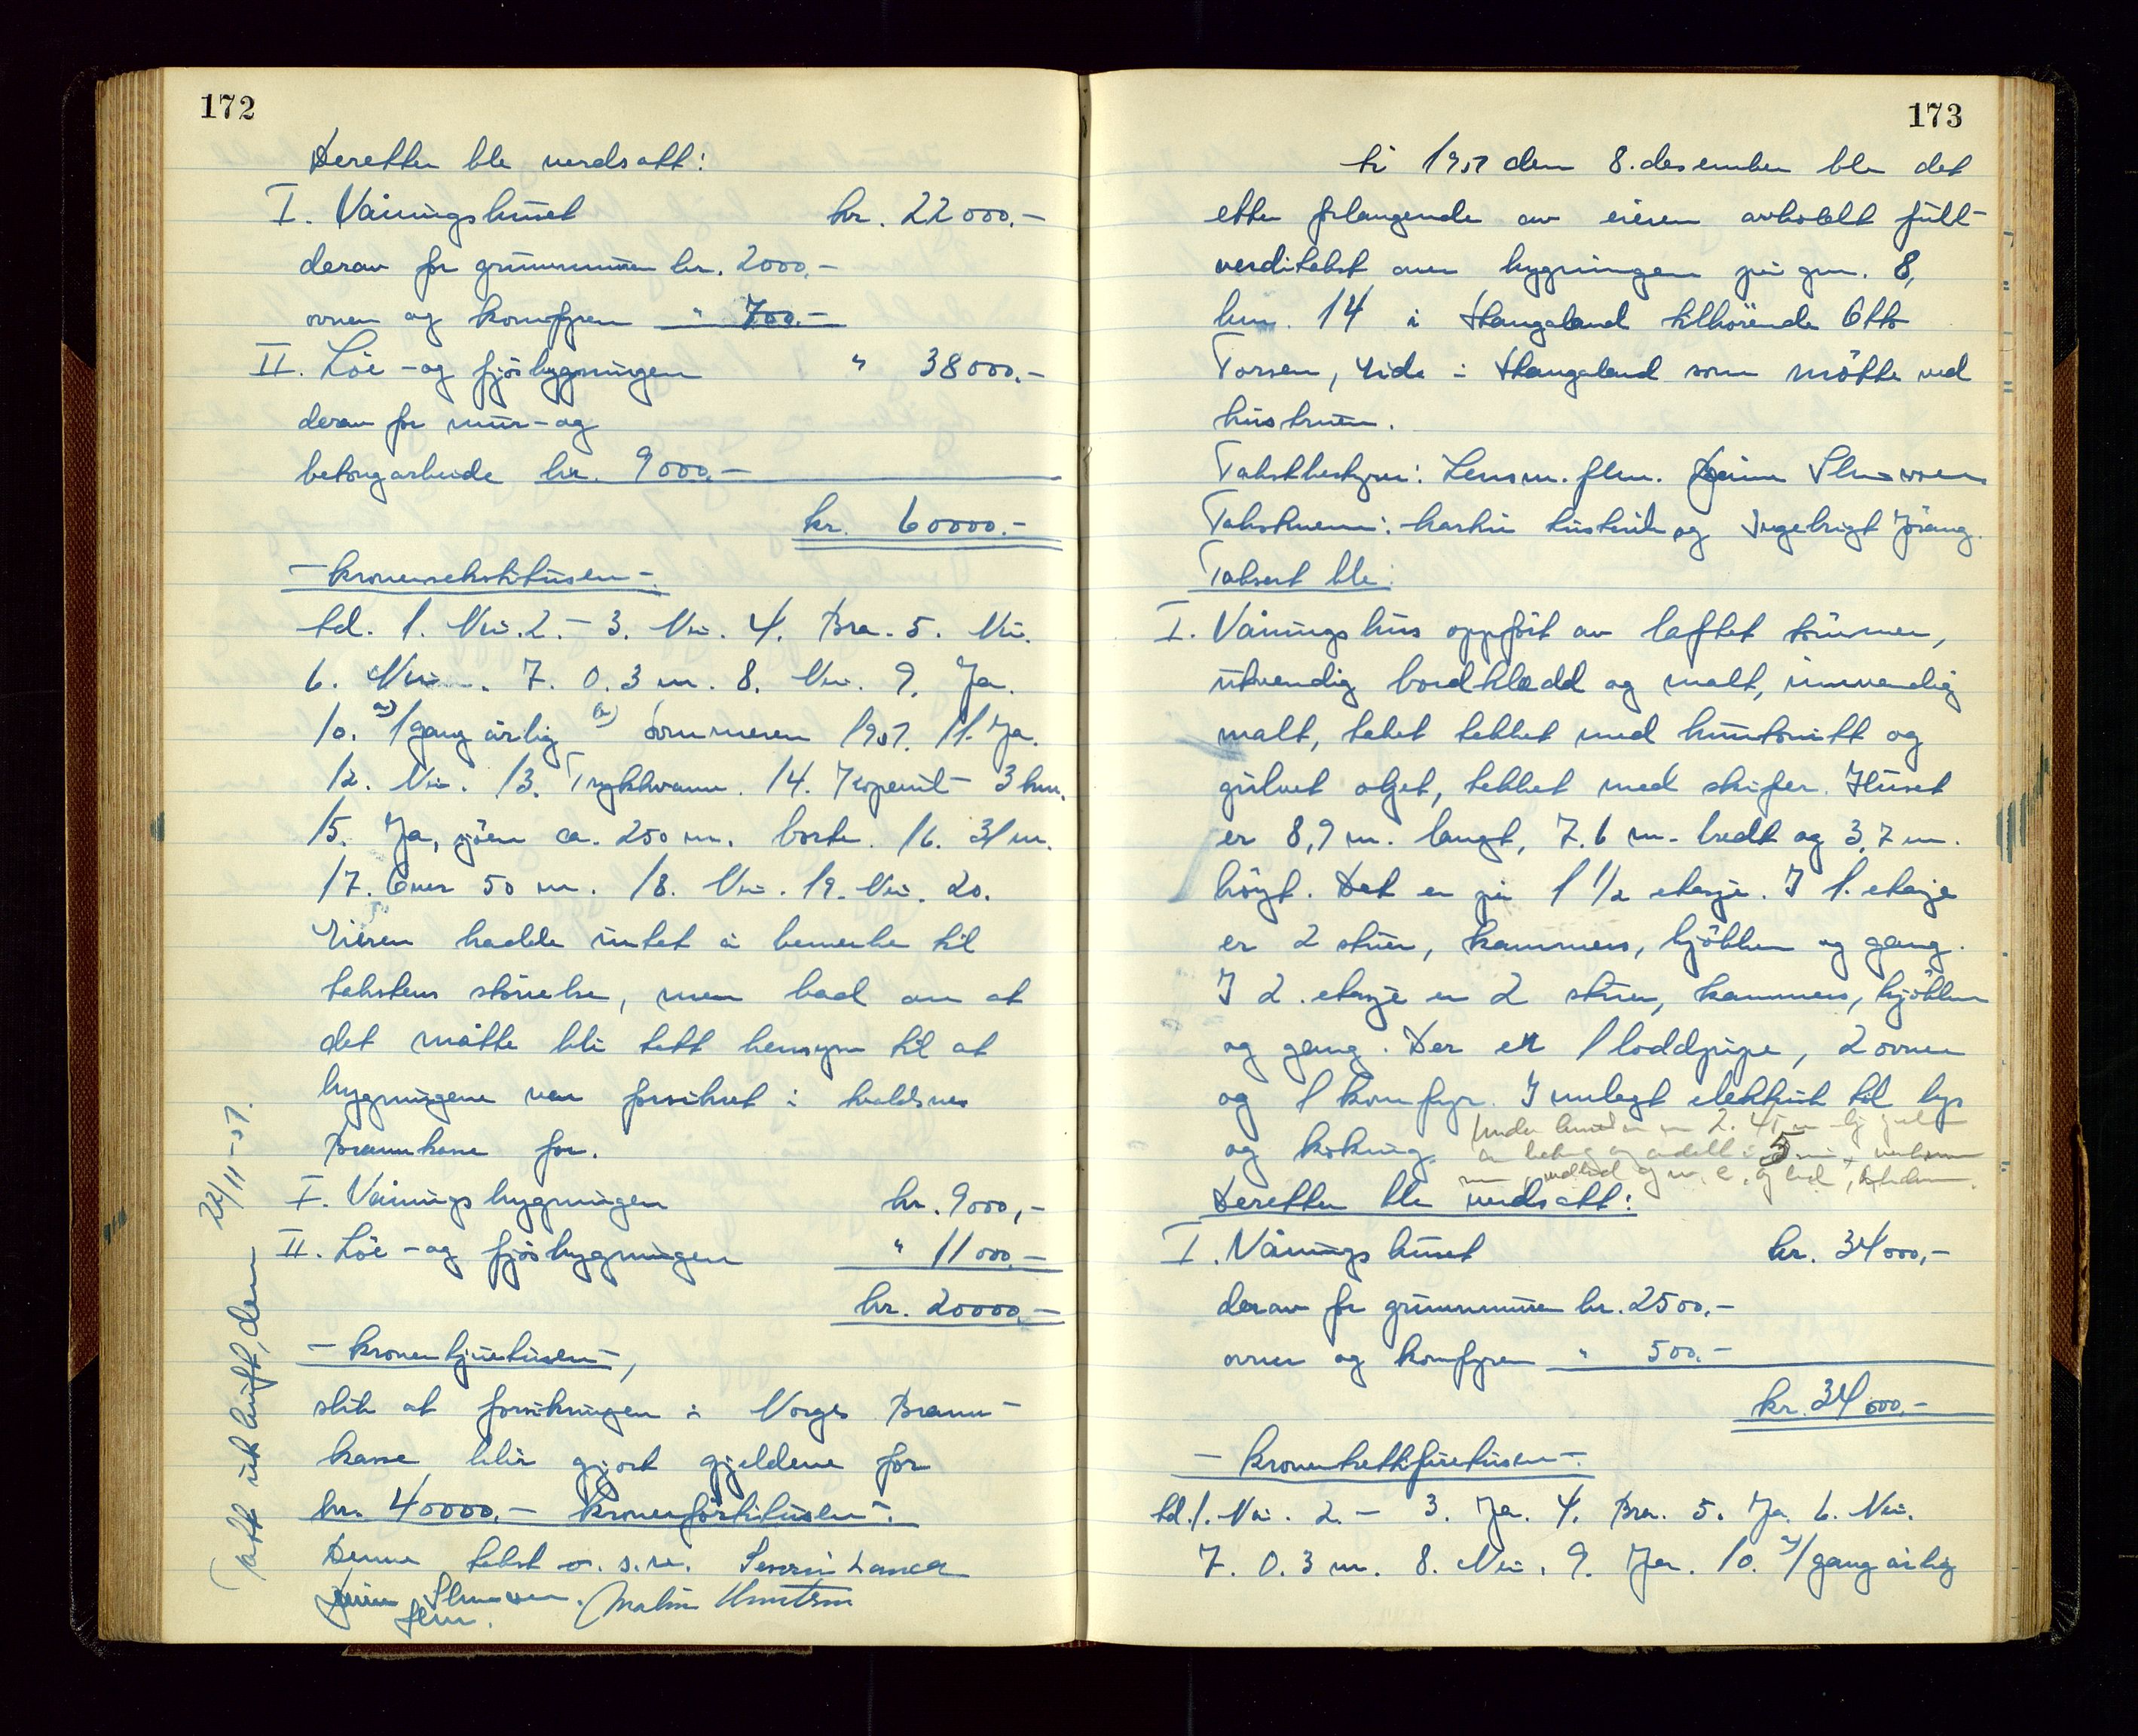 172
Deretter ble verdsatt:
I. Våningshuset kr. 22000.-
derav for grunnmuren kr. 2000,-
ovnen og komfyren " 700.-
II. Löe - og fjösbygningen " 38000.-
derav for mur- og
betongarbeide kr. 9000.-
kr. 60000.-
- kronersekstitusen -.
td. 1. Nei. 2. - 3. Nei. 4. Bra. 5. Nei.
6. Nei. 7. 0.3 m. 8. Nei. 9. Ja.
10. a) 1 gang årlig b) Sommeren 1951. 11. Ja.
12. Nei. 13. Trykkvann. 14. Kopervik 3 km.
15. Ja, sjöen ca. 250 m. borte. 16. 31 m.
17. Over 50 m. 18. Nei. 19. Nei. 20.
Eieren hadde intet å bemerke til
takstens störrelse, men bad om at
det måtte bli tatt hensyn til at
bygningene var forsikret i
Brannkasse for.
I. Våningsbygningen kr. 9000,-
II. Löe - og fjösbygningen " 11000.-
kr. 20000.-
- kronertjuetusen -,
slik at forsikringen i Norges Brann-
kasse blir gjort gjeldene for
kr. 40000.- kronerförtitusen -.
Denne takst o. s. v.
flm.
Tatt utskrift, den 22/11-51.
173
År 1951 den 8. desember ble det
etter forlangende av eieren avholdt full-
verditakst over bygningen på gnr. 8,
bnr. 14 i Stangaland tilhörende Otto
Torsen, Eide i Stangaland som mötte ved
hustruen.
Takstbestyrer: Lensm. flm.
Takstmenn: og Ingebrigt
Taksert ble:
I. Våningshus oppfört av laftet tömmer,
utvendig bordkledd og malt, innvendig
malt, taket tekket med og
tekket med skifer. Huset
er 8,9 m. langt, 7.6 m. bredt og 3,7 m.
höyt. Det er på 1 1/2 etasje. I 1. etasje
er 2 stuer, kammers, kjökken og gang.
I 2. etasje er 2 stuer, kammers, kjökken
og gang. Der er 1 loddpipe, 2 ovner
og 1 komfyr. Innlagt elektrisk til lys
og koking. Under huset er
Deretter ble verdsatt:
I. Våningshuset kr. 34000,-
derav for grunnmuren kr. 2500.-
ovner og komfyren " 500.-
kr. 34000.-
- kronertrettifiretusen -.
td. 1. Nei. 2. - 3. Ja. 4. Bra. 5. Ja. 6. Nei.
7. 0.3 m. 8. Nei. 9. Ja. 10. a) 1 gang årlig